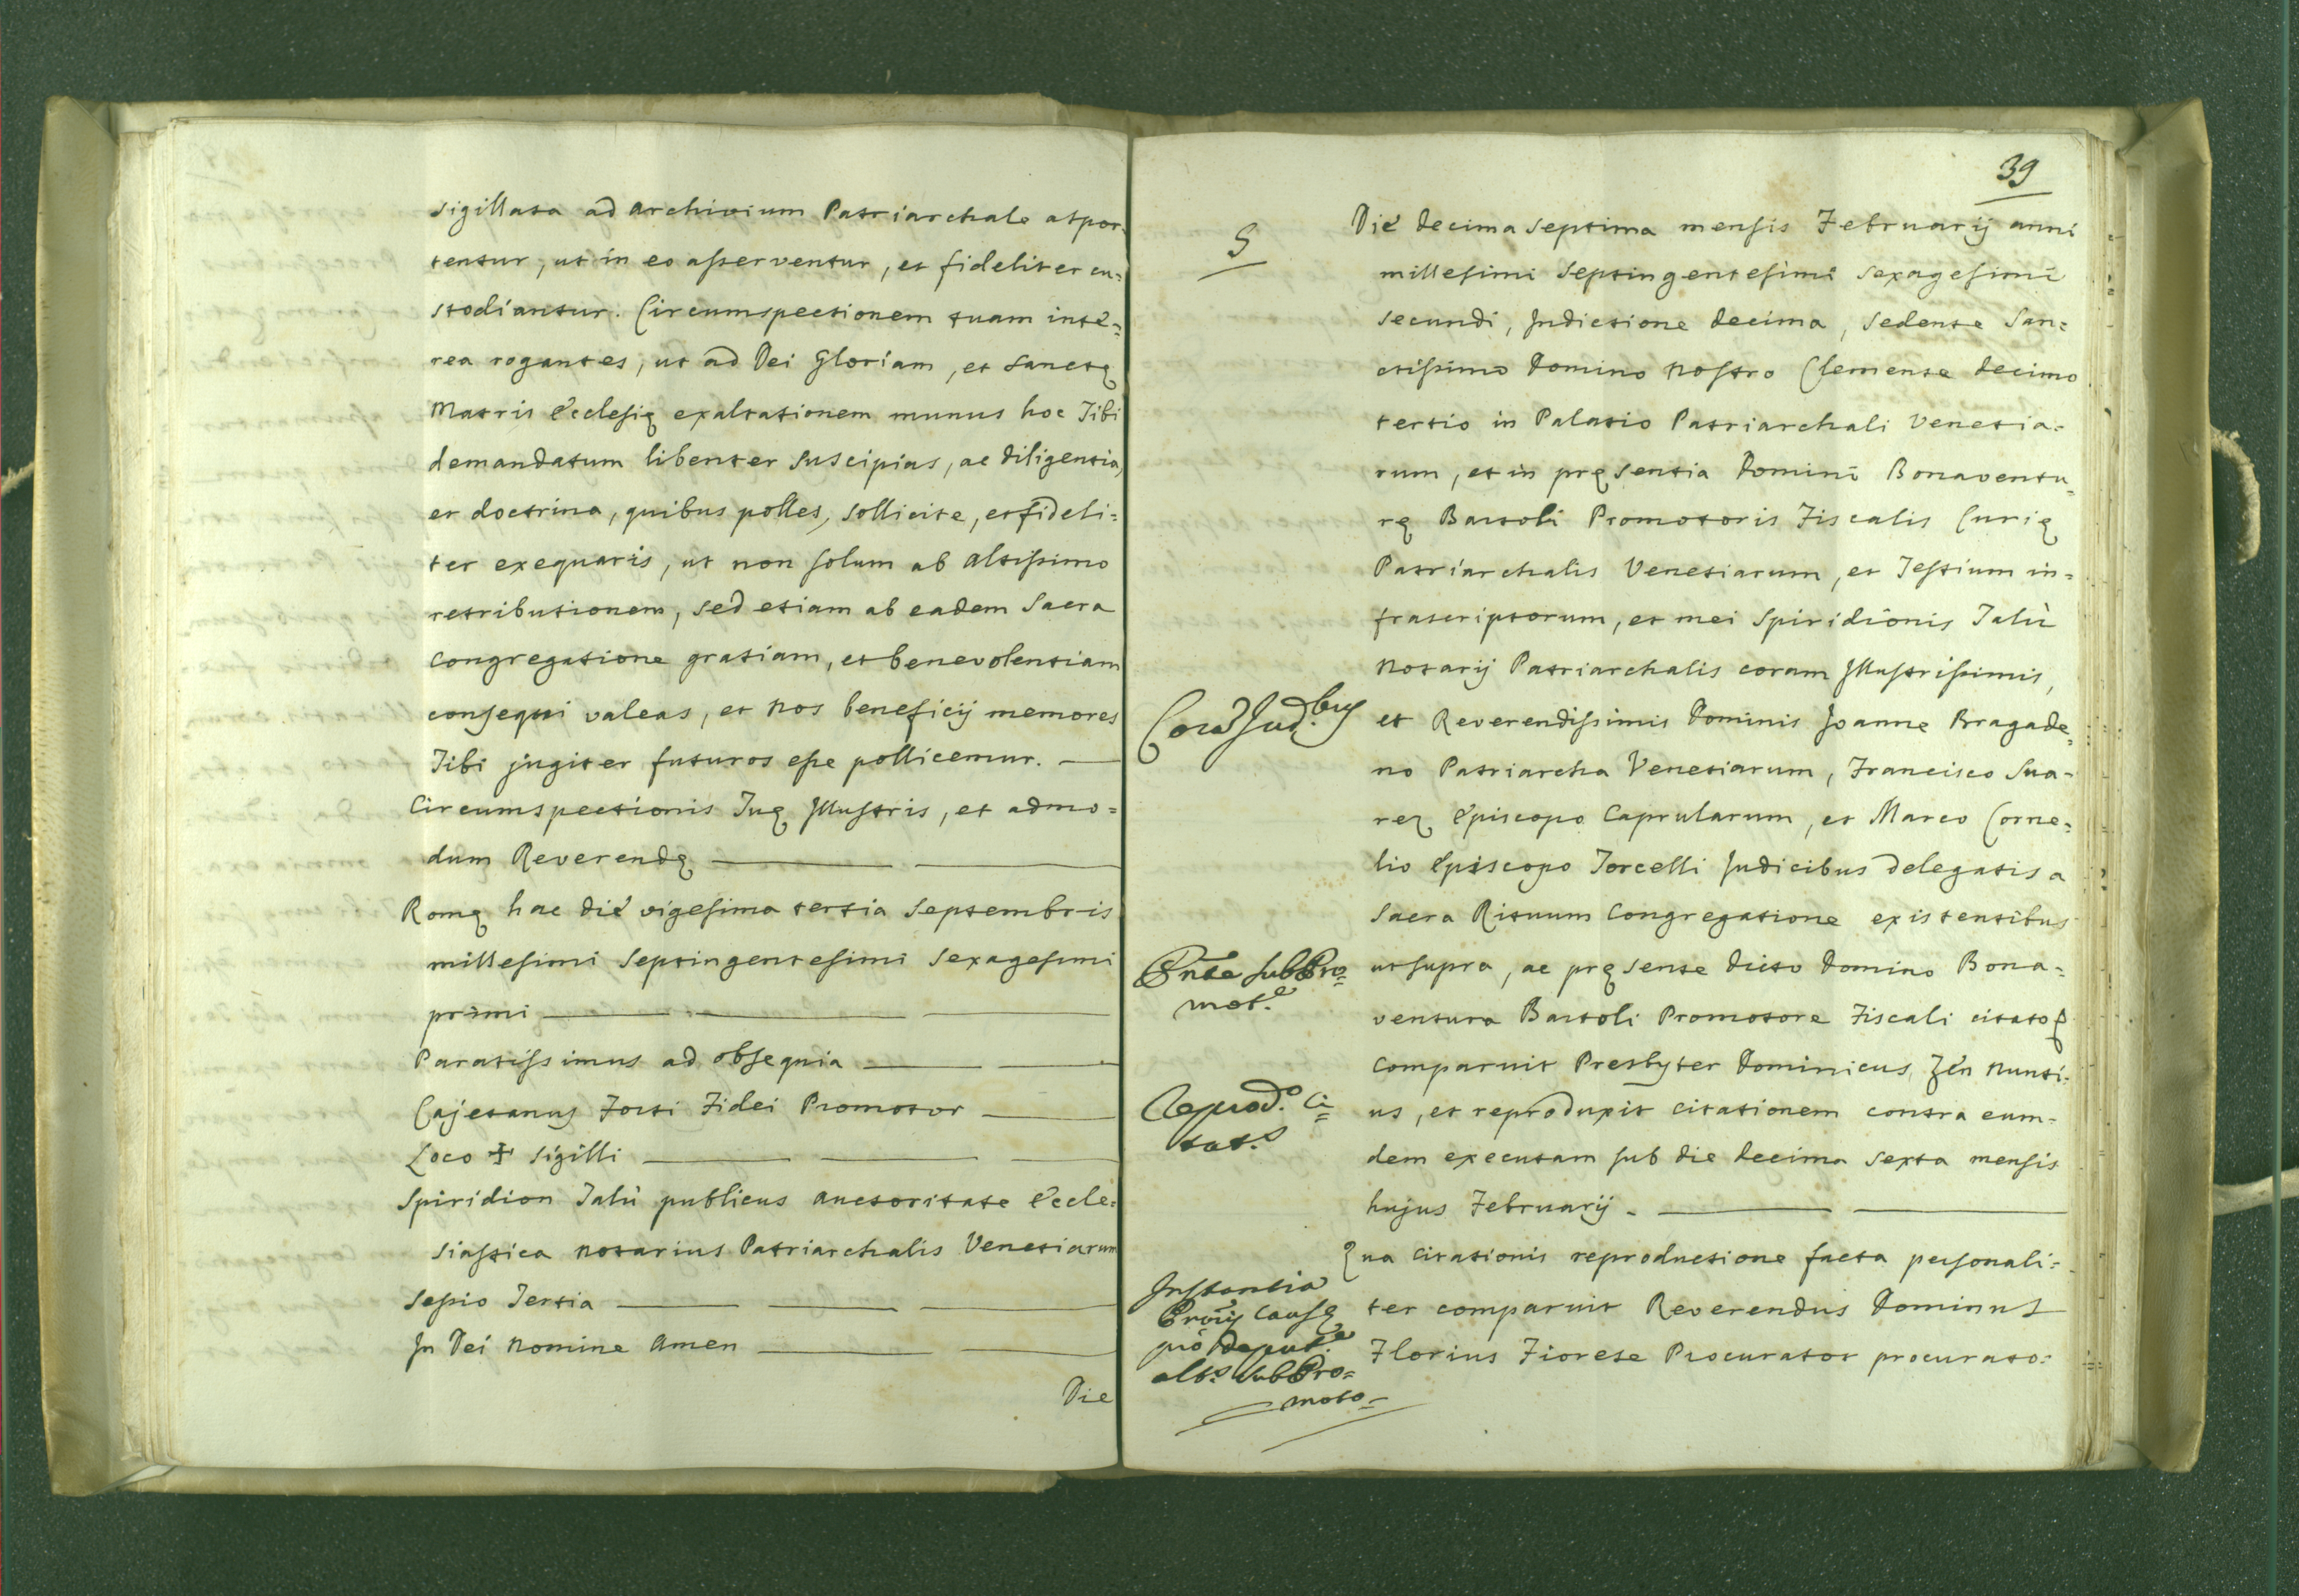 sigillata ad archivium Patriarchale atpor-
tentur, ut in eo asserventur, et fideliter cu=
stodiantur. Circumspectionem tuam inte=
rea rogantes, ut ad Dei Gloriam, et Sanctę
Matris Ecclesię exaltationem munus hoc Tibi
demandatum libenter suscipias, ac diligentia,
et doctrina, quibus polles, sollicite, et fideli=
ter exequaris, ut non solum ab Altissimo
retributionem, sed etiam ab eadem Sacra
Congregatione gratiam, et benevolentiam
consequi valeas, et nos beneficij memores
Tibi jugiter futuros esse pollicemur. —
Circumspectionis Tuę Illustris, et admo=
dum Reverendę — —
Romę hac die vigesima tertia Septembris
millesimi septingentesimi sexagesimi
primi — — —
Paratissimus ad obsequia — —
Cajetanus Forti Fidei Promotor —
Loco ✝ sigilli — — —
Spiridion Talù publicus auctoritate Eccle=
siastica notarius Patriarchalis Venetiarum
Sessio Tertia — — —
In Dei Nomine Amen — —
Die
39
S
Die decima septima mensis Februarij anni
millesimi septingentesimi sexagesimi
secundi, Indictione decima, sedente San=
ctissimo Domino Nostro Clemente decimo
tertio in Palatio Patriarchali Venetia=
rum, et in pręsentia Domini Bonaventu=
rę Bartoli Promotoris Fiscalis Curię
Patriarchalis Venetiarum, et Testium in=
frascriptorum, et mei Spiridionis Talù
Notarij Patriarchalis coram Illustrissimis,
Corã Jud.bus
et Reverendissimis Dominis Joanne Bragade=
no Patriarcha Venetiarum, Francisco Sua=
rez Episcopo Caprularum, et Marco Corne=
lio Episcopo Torcelli Judicibus delegatis a
Sacra Rituum Congregatione existentibus
Pñte subPro=
mot.e
ut supra, ac pręsente dicto Domino Bona=
ventura Bartoli Promotore Fiscali citato
comparuit Presbyter Dominicus Zen Nunti=
Reprod.o Ci=
tat.s
us, et reproduxit citationem contra eum=
dem executam sub die decima sexta mensis
hujus Februarij. — —
Qua citationis reproductione facta personali=
Instantia
Proris Causę
pro deput.e
alt.s subPro=
moto=
ter comparuit Reverendus Dominus
Florius Fiorese Procurator procurato=